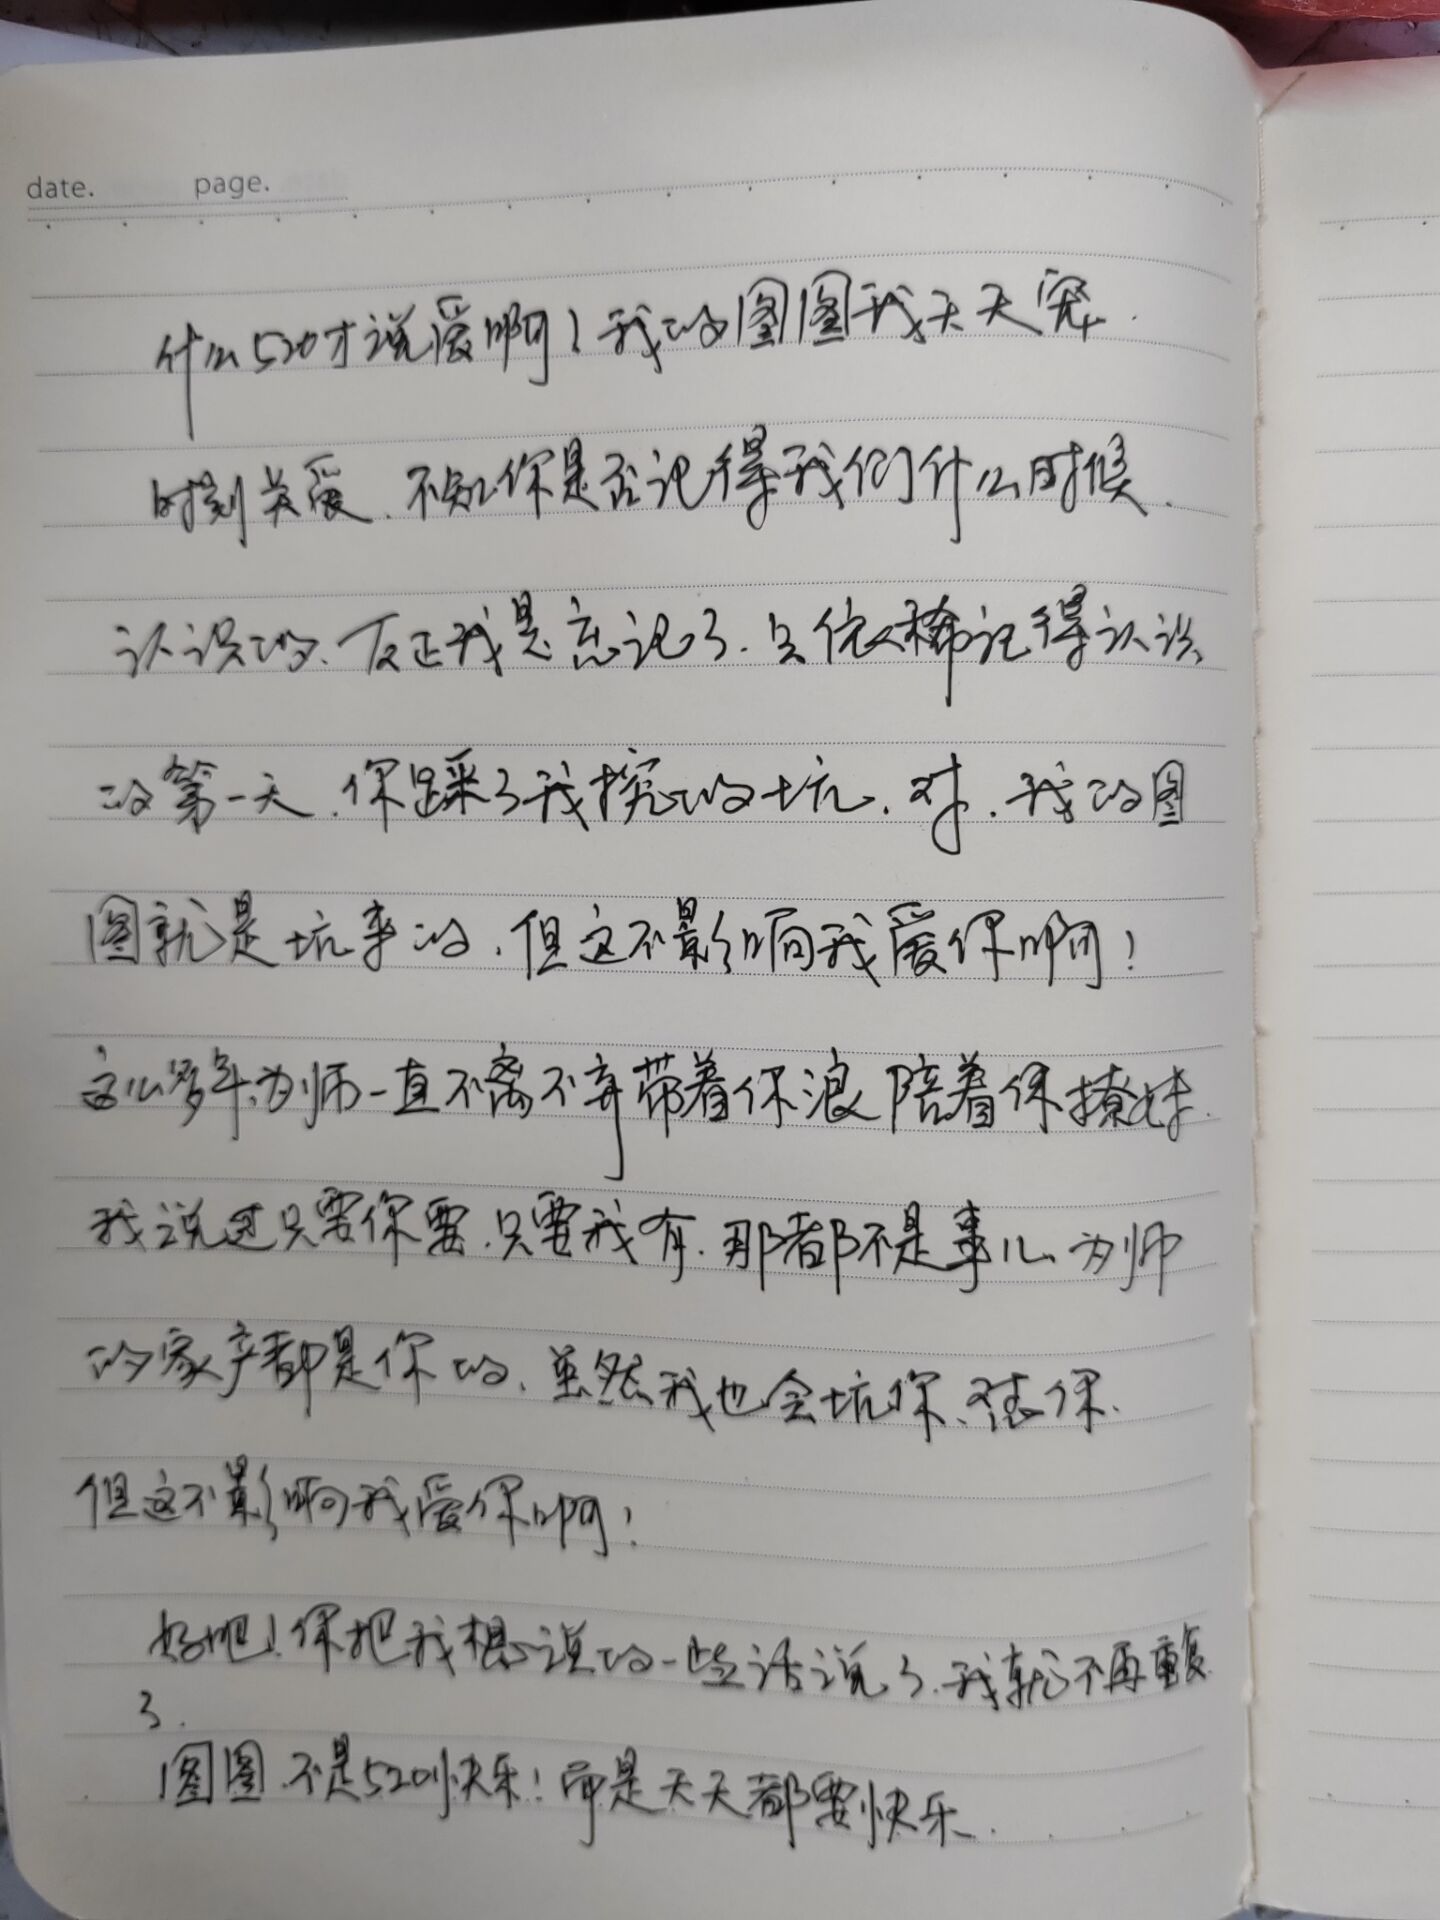 date. page.
什么520才说爱啊！我的图图我天天宠.
时刻关爱.不知你是否记得我们什么时候.
认识的、反正我是忘记了.只依稀记得认识
的第一天.你踩了我挖的坑.对.我的图
图就是坑来的.但这不影响我爱你啊！
这么多年.为师一直不离不弃带着你浪陪着你撩妹.
我说过只要你要.只要我有.那都不是事儿、为师
的家产都是你的、虽然我也会坑你、怼你.
但这不影响我爱你啊！
好吧！你把我想说的一些话说了.我就不再重复
了.
图图.不是520快乐！而是天天都要快乐.